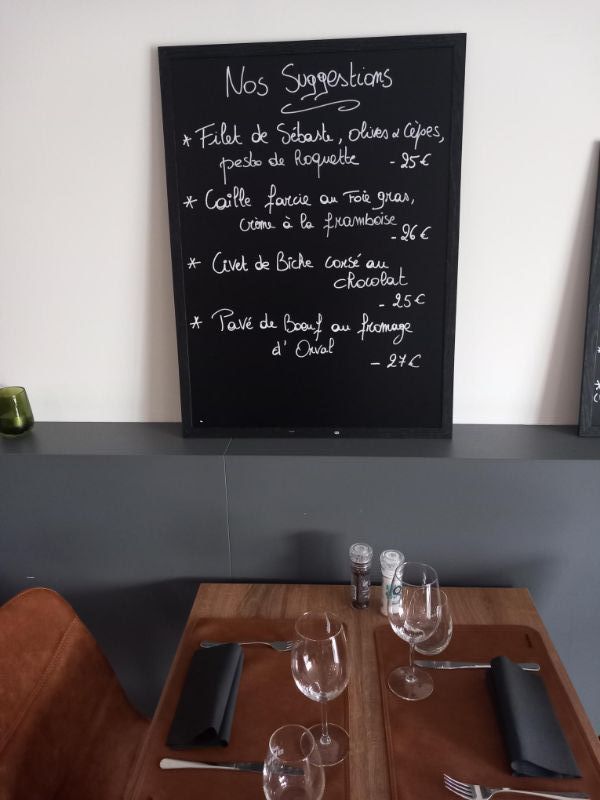 Nos Suggestions
* Filet de Sébaste, olives & Cèpes,
pesto de Roquette - 25€
* Caille farcie au Foie gras,
crème à la framboise
- 26€
* Civet de Biche corsé au
chocolat
- 25€
* Pavé de Boeuf au fromage
d'Orval
- 27€